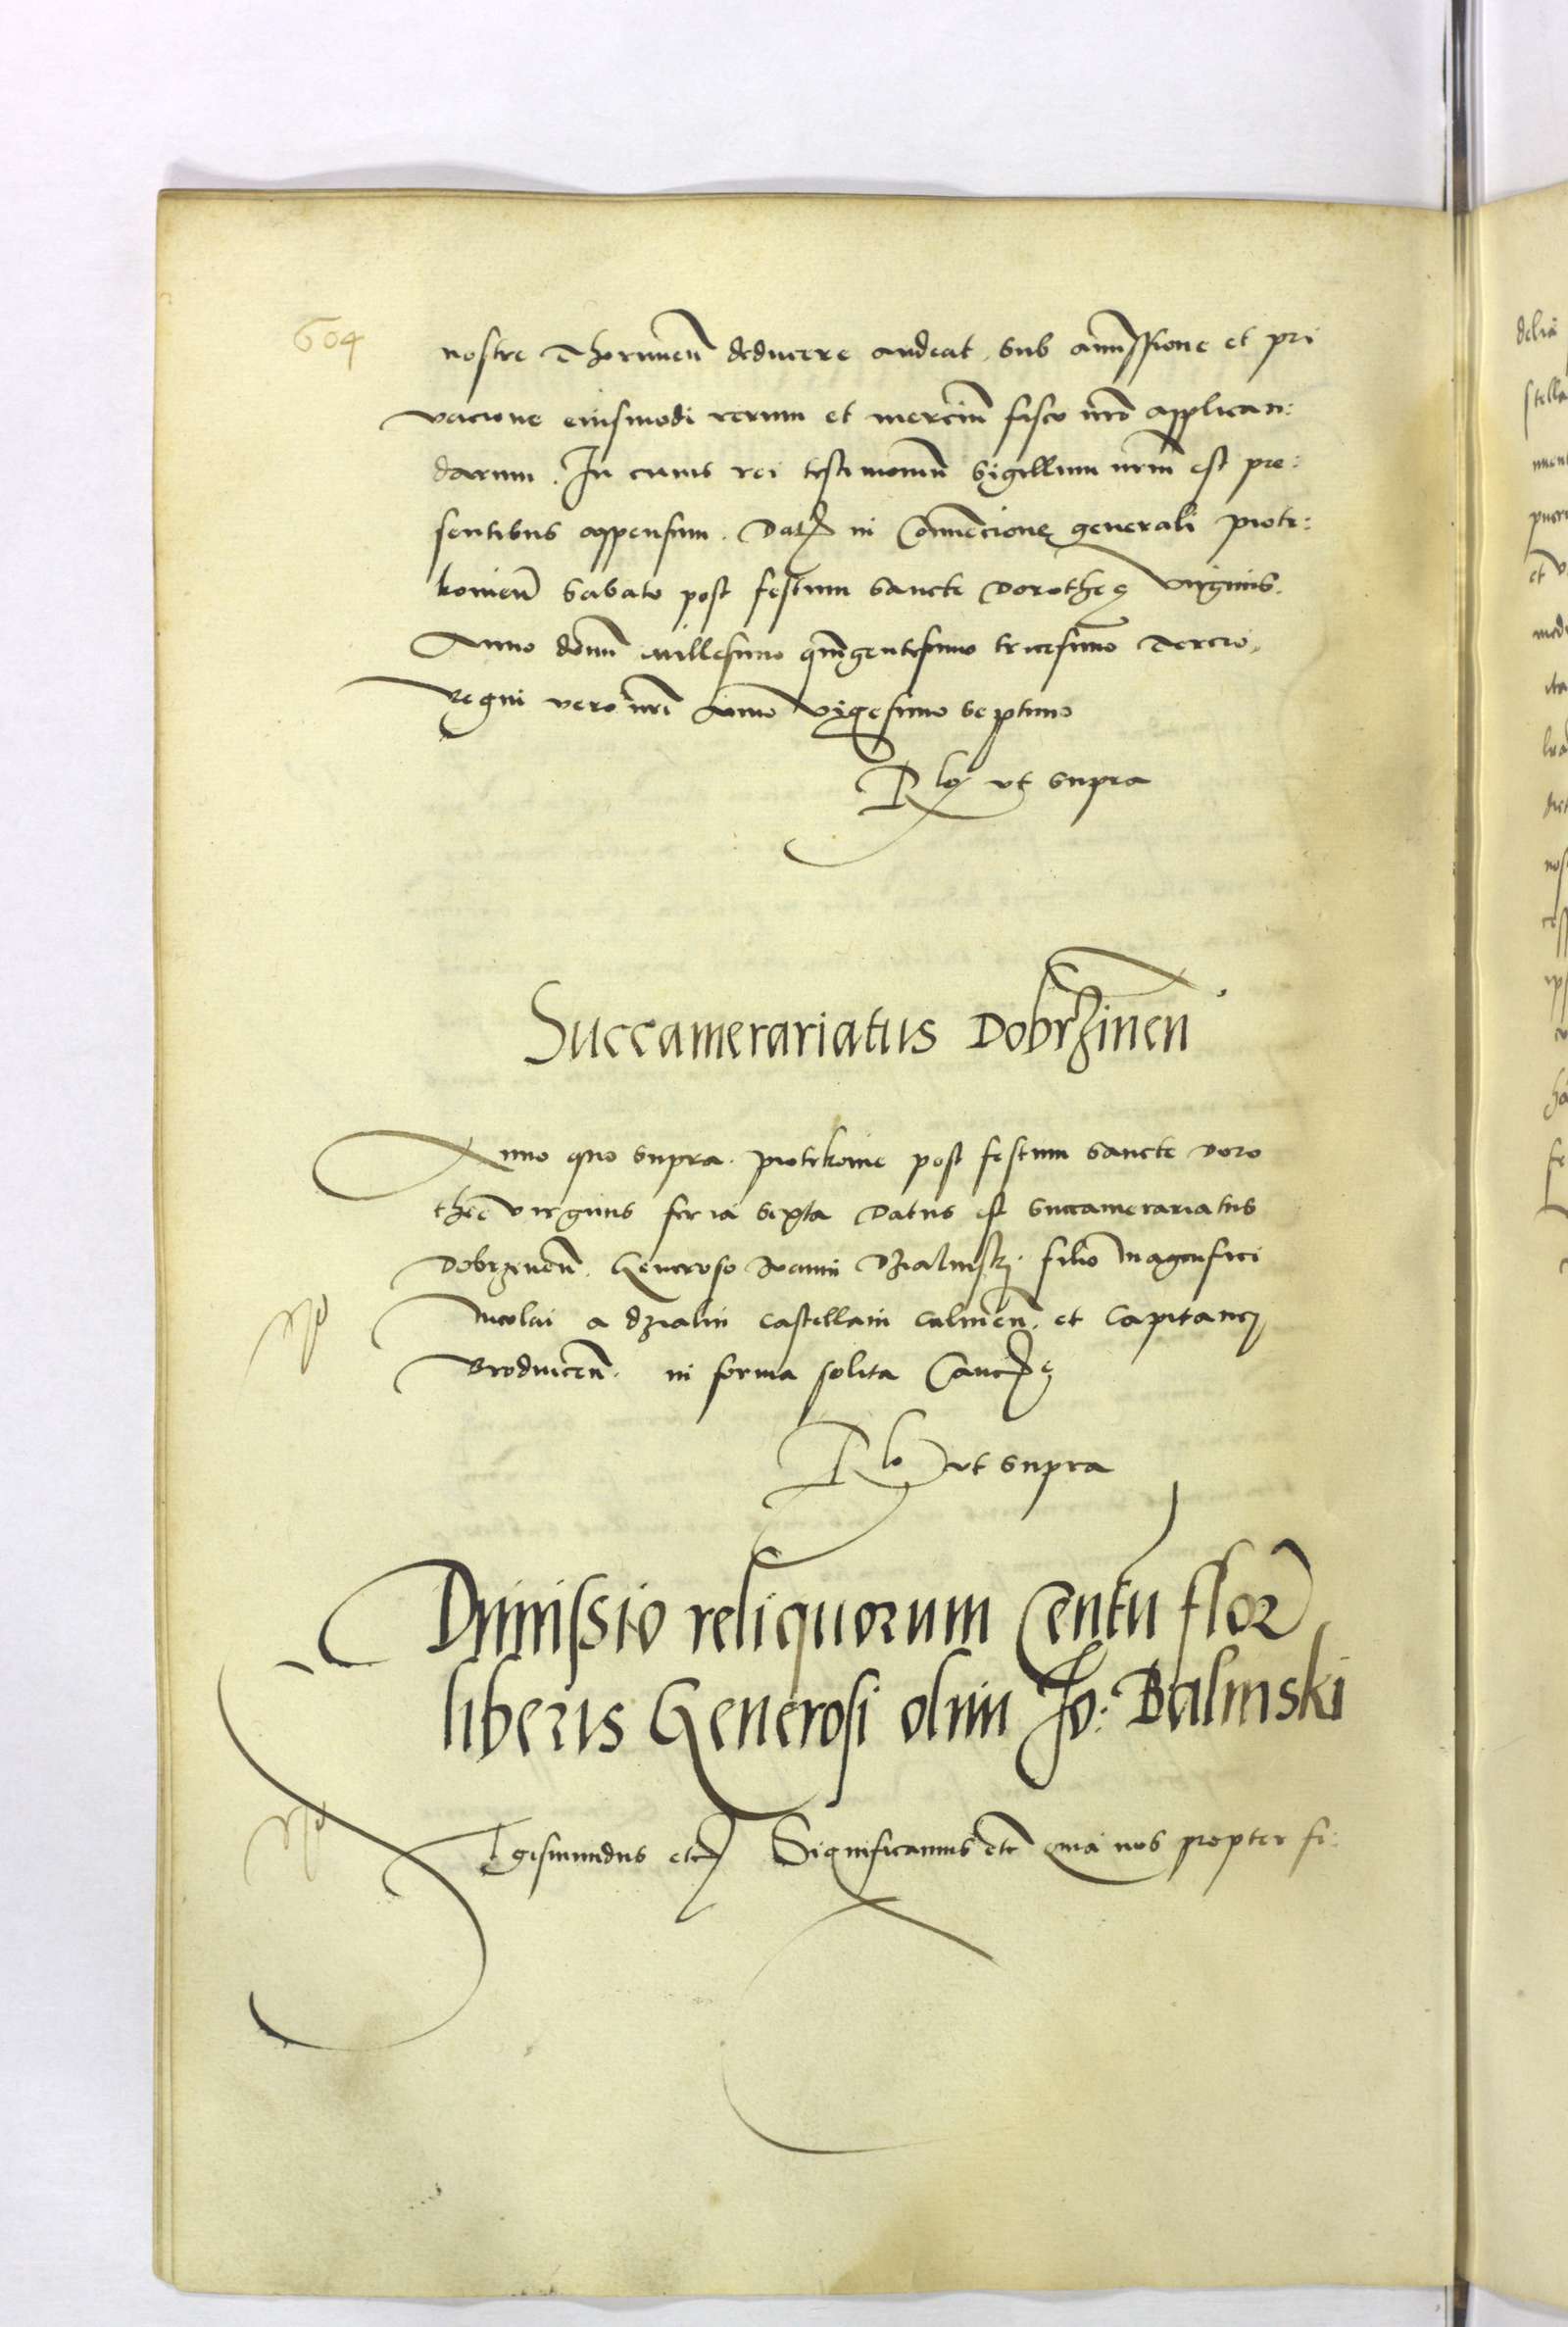 604
nostre Thorunien̄ deducere audeat, sub amissione et pri
vacione eiusmodi rerum et merciū fisco nr̄o applican:
darum. In cuius rei testimoniū Sigillum nr̄m est pre:
sentibus appensum. Dat in Convēcione generali Piotr:
kovien̄ Sabato post festum Sancte Dorotheę Virginis.
Anno domī Millesimo quīgentesimo tricesimo Tercio,
Regni vero nr̄i Anno Vigesimo Septimo
Rlo ut supra
Succamerariatus Dobrzinen̄
Anno quo supra. Piotrkovie post festum Sancte Doro
thee virginis feria sexta Datus est Succamerariatus
Dobrzinen̄. Generoso Ioanni Dzialinski. filio Magnifici
Nicolai a Dzialin Castellani Culmen̄. et Capitanei
Brodnicen̄. in forma solita Canc
Rlo ut supra
Dimissio reliquorum Centū flor
liberis Generosi olim Jo: Balinski
Sigismundus etc Significamus etc̄ quia nos propter fi: